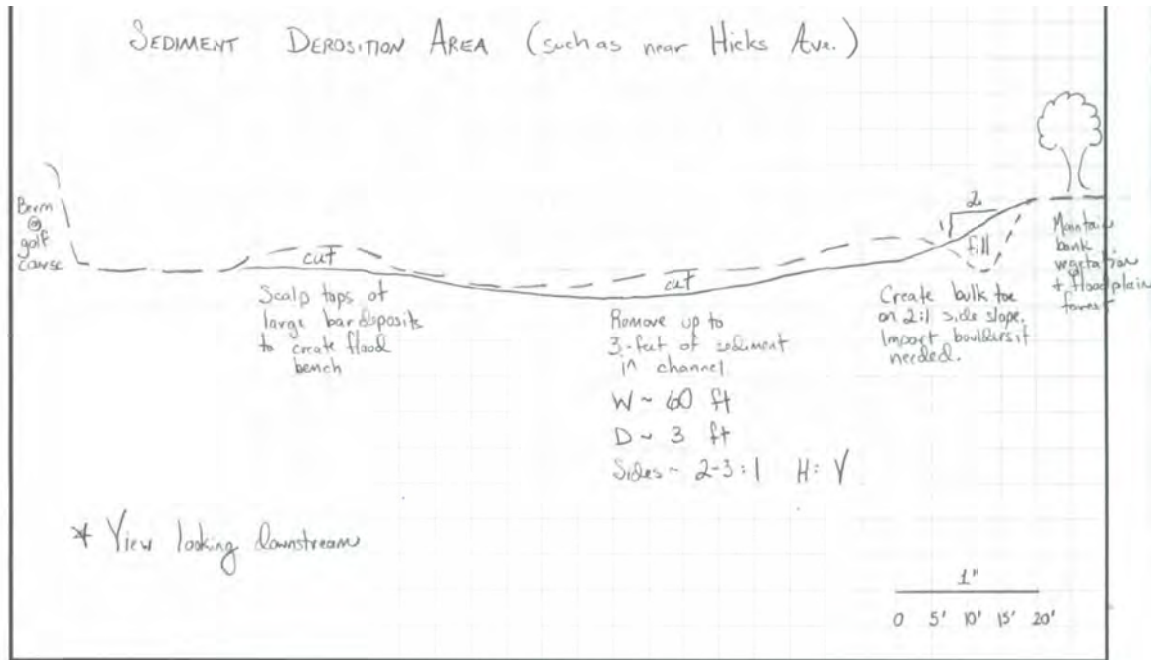 SEDIMENT DEPOSITION AREA (such as near Hicks Ave.)
Berm
@
golf
course
cut
Scalp tops of
large bar deposits
to create flood
bench
cut
Remove up to
3-feet of sediment
in channel
W ~ 60 ft
D ~ 3 ft
Sides ~ 2-3:1 H:V
1
2
fill
Create bulk toe
on 2:1 side slope.
Import boulders if
needed.
Maintain
bank
vegetation
+ floodplain
forest
* View looking downstream
1"
0 5' 10' 15' 20'